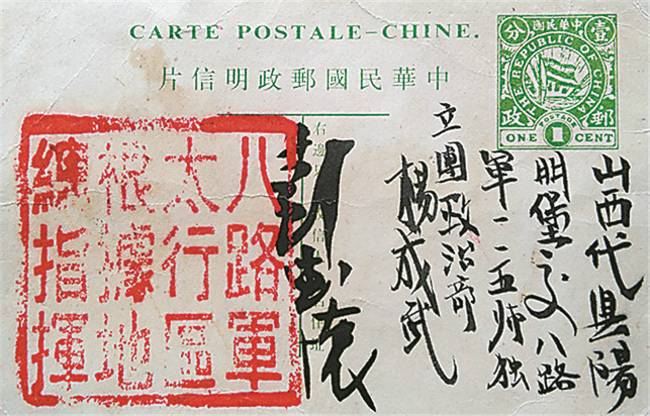 CARTE POSTALE–CHINE.
中華民國郵政明信片
中華民國
壹分
郵政
THE REPUBLIC OF CHINA
POSTAGE
ONE 1 CENT
山西代县陽
明堡交八路
軍一一五师独
立團政治部
楊成武
彭德怀
八路軍
太行區
根據地
總指揮